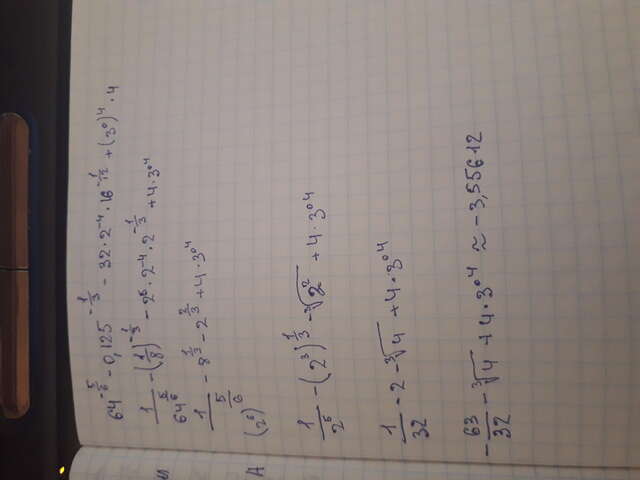 64^{-5/6} - 0,125^{-1/3} - 32 · 2^{-4} · 16^{-1/12} + (3^0)^4 · 4
1/64^{5/6} - (1/8)^{-1/3} - 2^5 · 2^{-4} · 2^{-1/3} + 4 · 3^{04}
1/(2^6)^{5/6} - 8^{1/3} - 2^{2/3} + 4 · 3^{04}
1/2^5 - (2^3)^{1/3} - ∛2^2 + 4 · 3^{04}
1/32 - 2 - ∛4 + 4 · 3^{04}
-63/32 - ∛4 + 4 · 3^{04} ≈ -3,55612